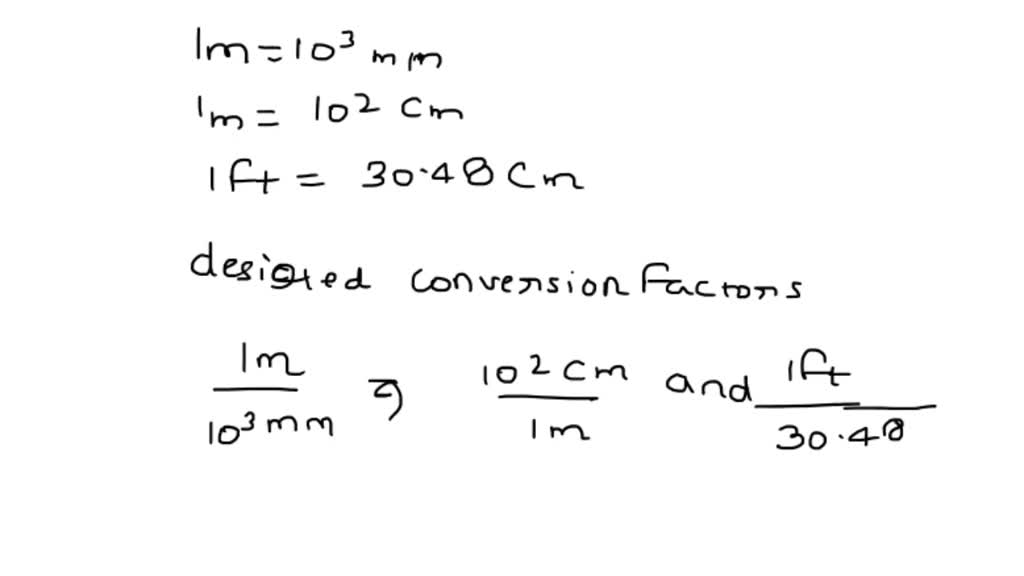 1m = 10³ mm
1m = 10² cm
1ft = 30.48 cm
desigted conversion factors
1m / 10³ mm , 10² cm / 1m and 1ft / 30.48